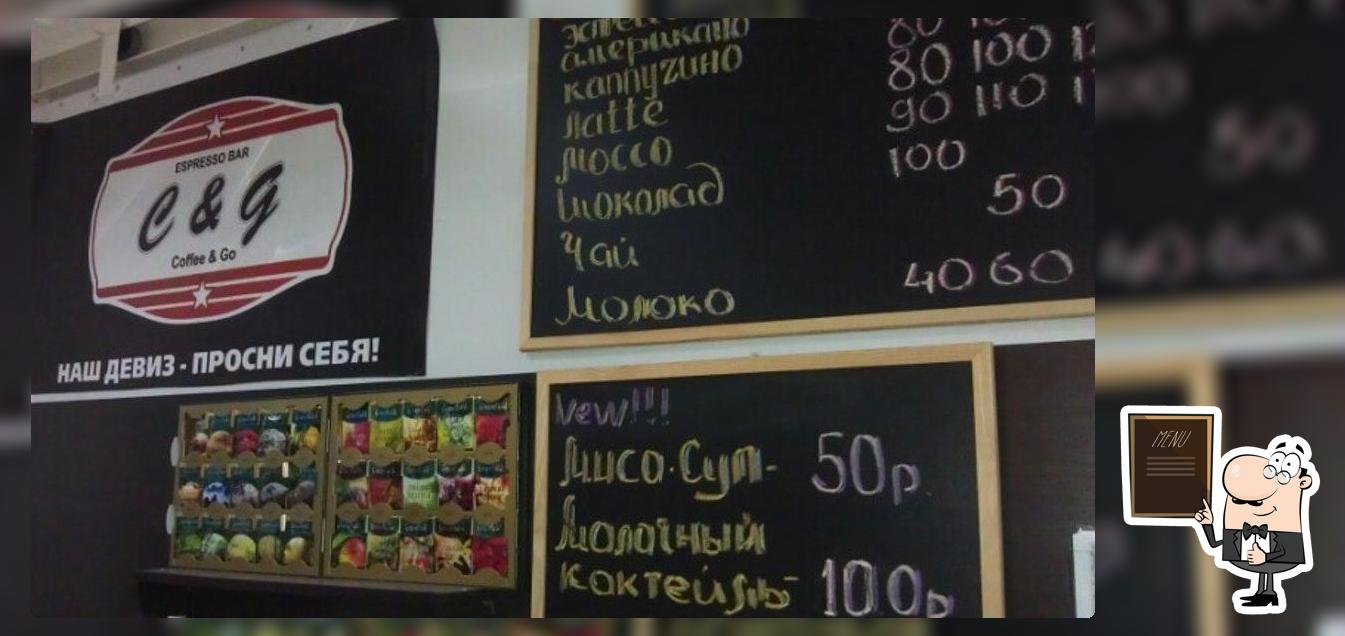 ESPRESSO BAR
C & G
Coffee & Go
НАШ ДЕВИЗ - ПРОСНИ СЕБЯ!
американо 80
каппучино 80 100
латте 90 110
моссо 100
шоколад 50
Чай
Молоко 40 60
New!!!
Мисо-Суп- 50р.
Молочный
коктейль- 100р
MENU